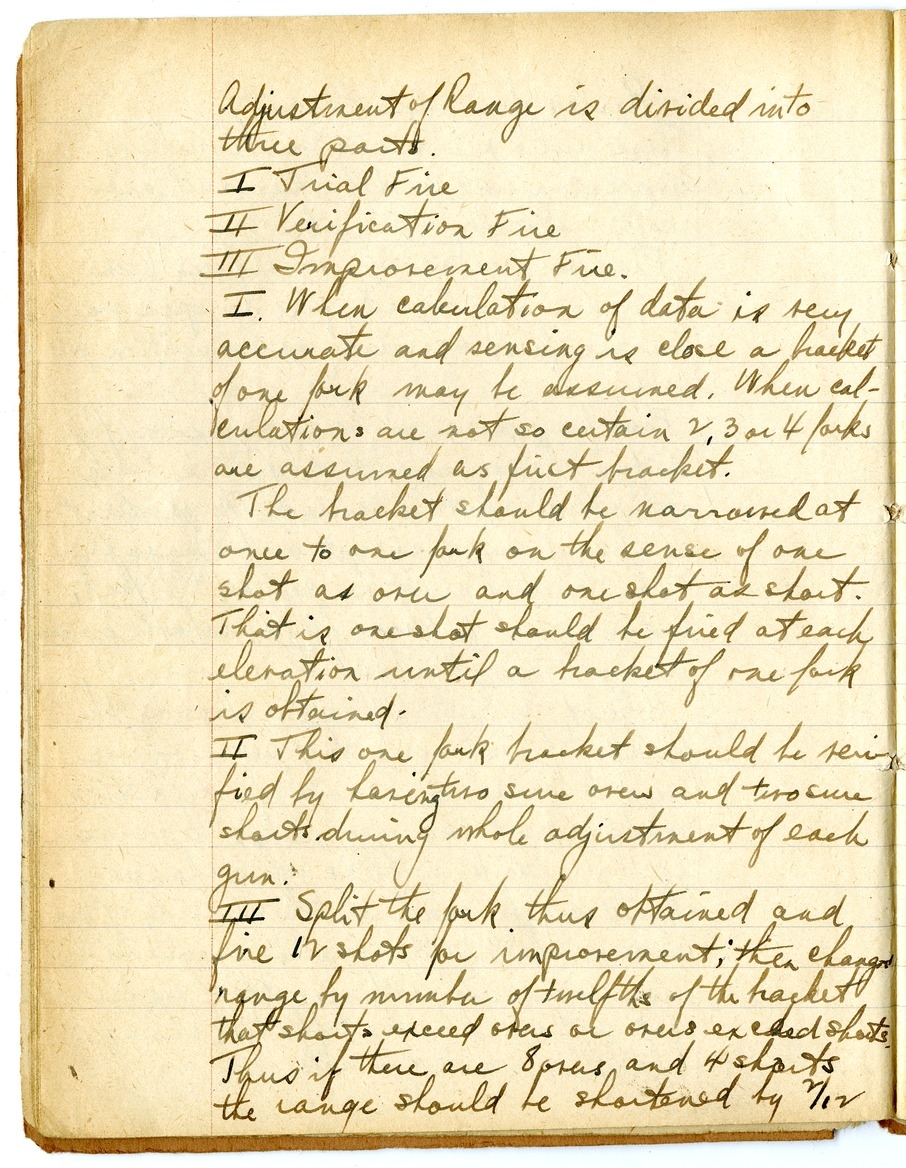 Adjustment of Range is divided into
three parts.
I Trial Fire
II Verification Fire
III Improvement Fire.
I. When calculation of data is very
accurate and sensing is close a bracket
of one fork may be assumed. When cal-
culations are not so certain 2, 3 or 4 forks
are assumed as first bracket.
The bracket should be narrowed at
once to one fork on the sense of one
shot as over and one shot as short.
That is one shot should be fired at each
elevation until a bracket of one fork
is obtained.
II This one fork bracket should be veri-
fied by having two sure overs and two sure
shorts during whole adjustment of each
gun.
III Split the fork thus obtained and
fire 12 shots for improvement; then change
range by number of twelfths of the bracket
that shorts exceed overs or overs exceed shorts.
Thus if there are 8 overs and 4 shorts
the range should be shortened by 2/12